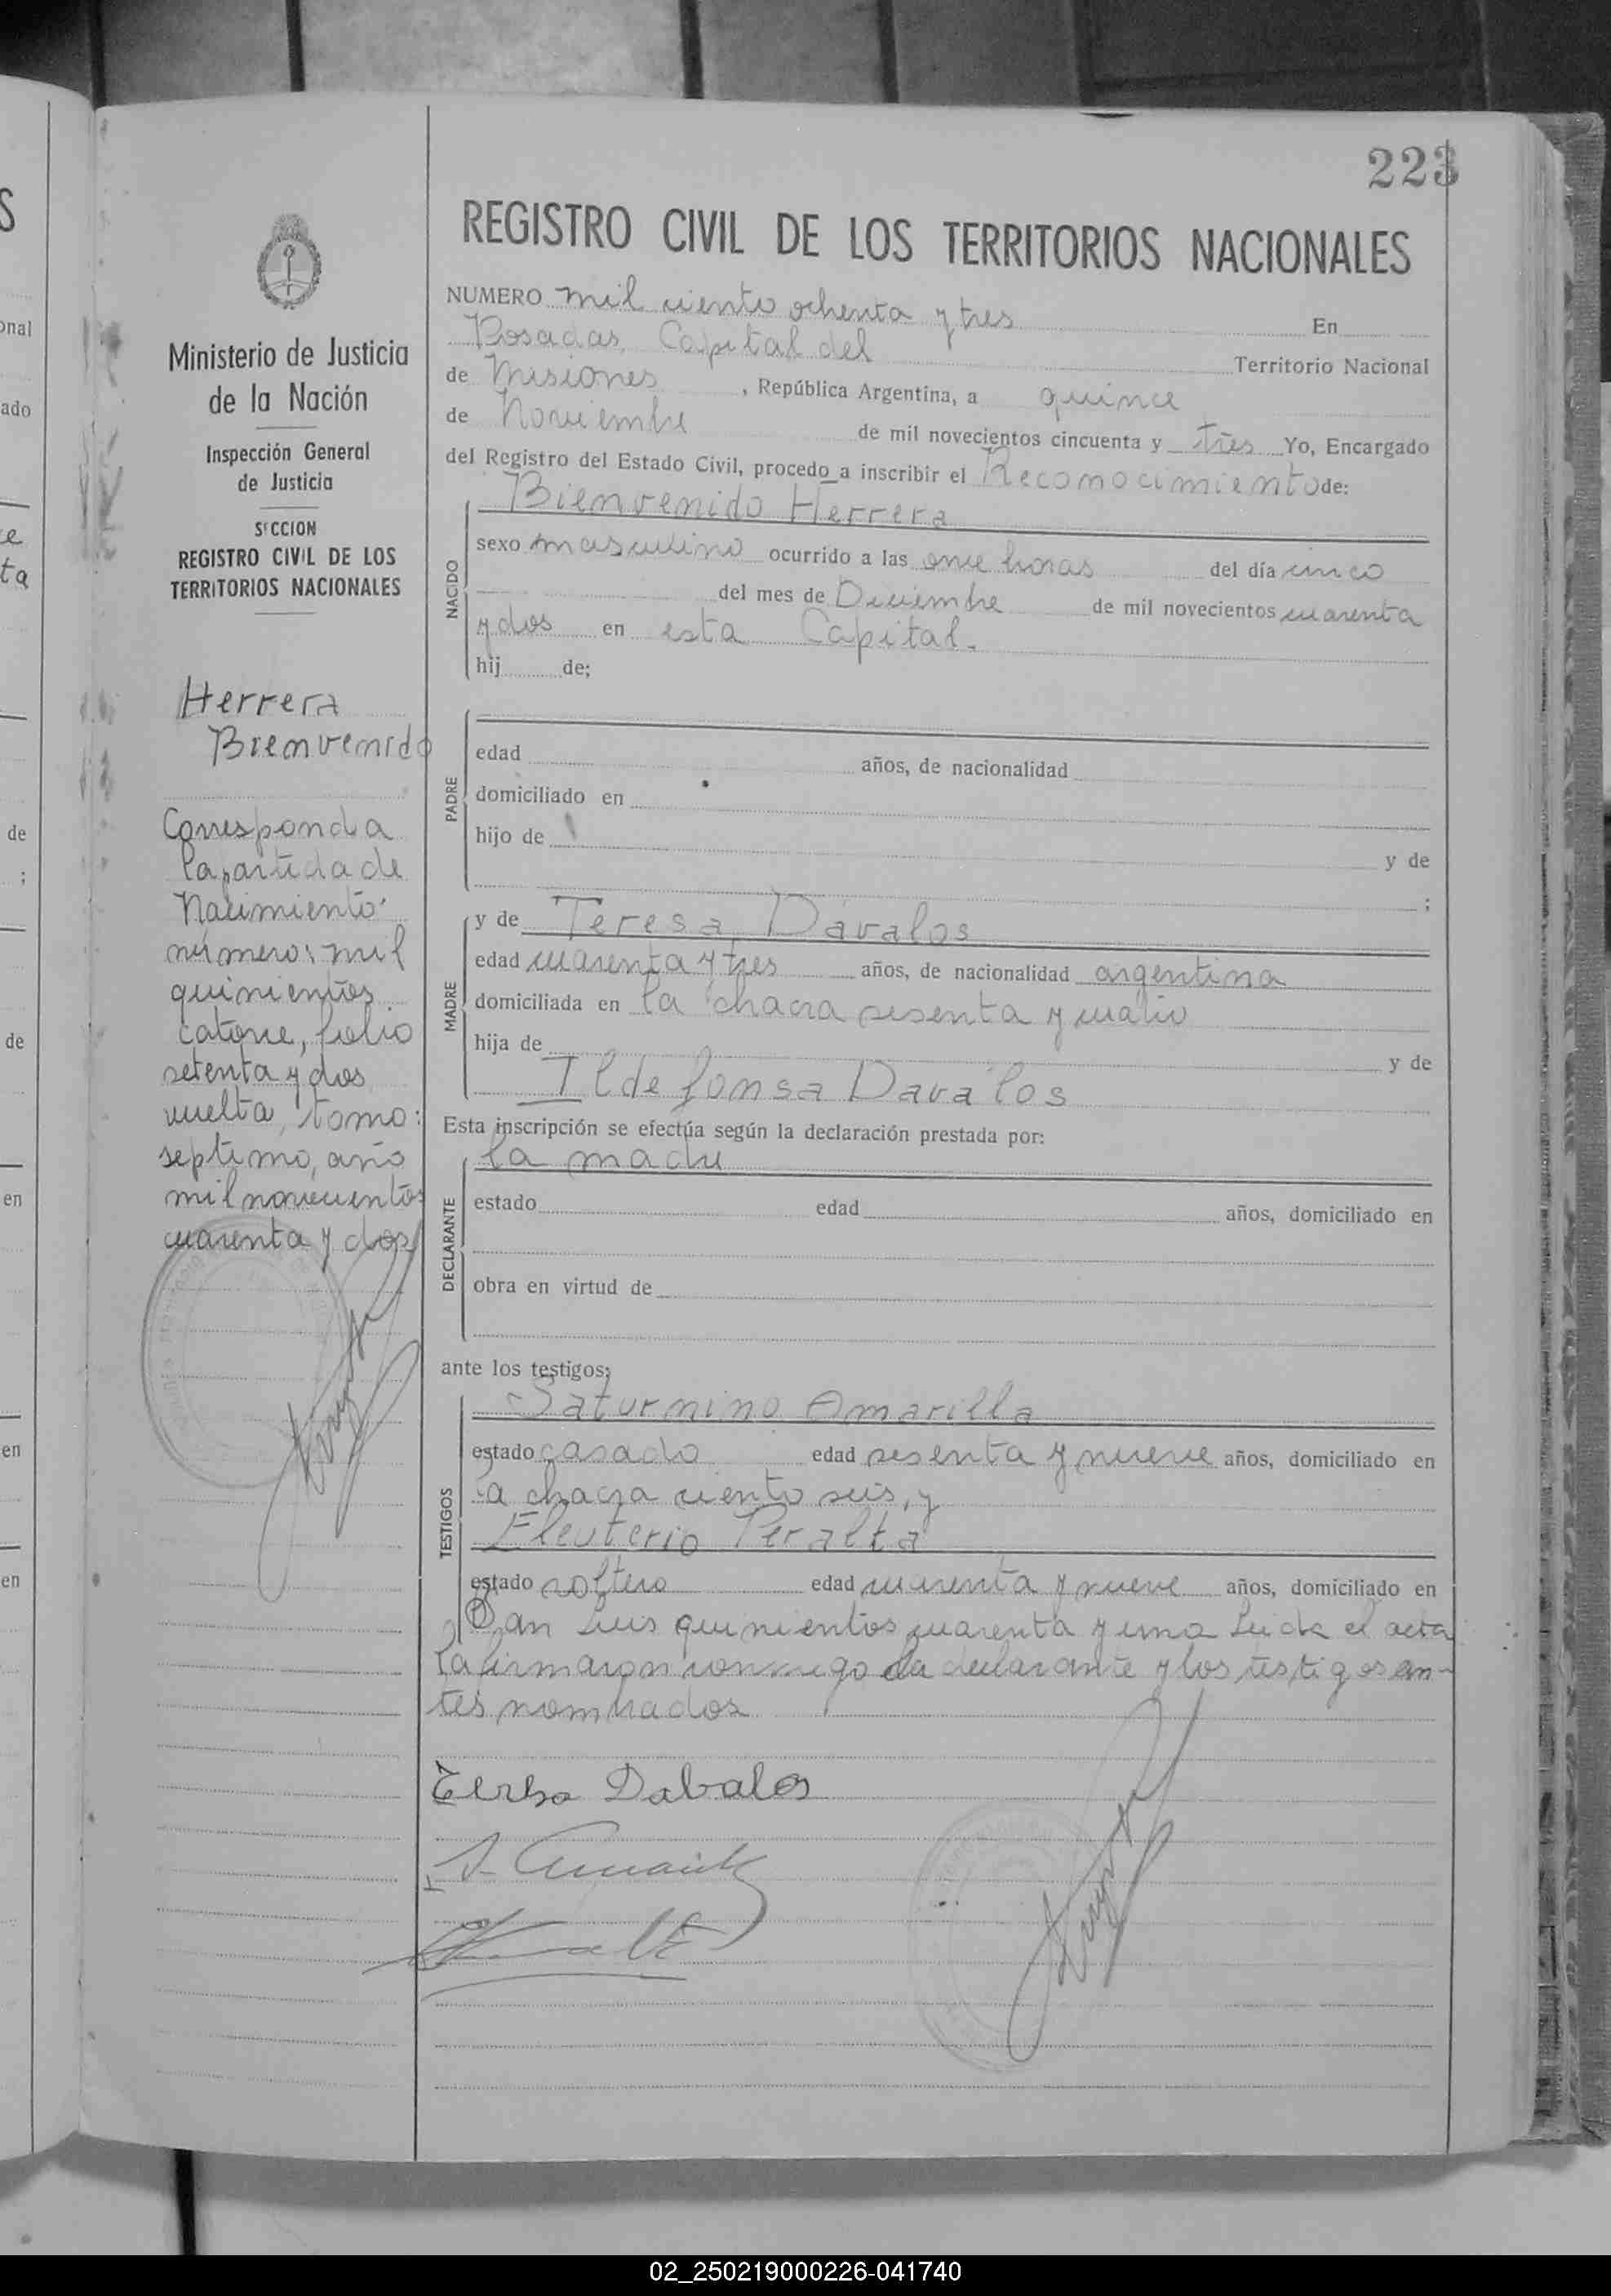 223
REGISTRO CIVIL DE LOS TERRITORIOS NACIONALES
NUMERO mil ciento ochenta y tres En
Posadas, Capital del Territorio Nacional
de Misiones, República Argentina, a quince
de Noviembre de mil novecientos cincuenta y tres Yo, Encargado
del Registro del Estado Civil, procedo a inscribir el Reconocimiento de:
NACIDO
Bienvenido Herrera
sexo masculino ocurrido a las once horas del día cinco
del mes de Diciembre de mil novecientos cuarenta
y dos en esta Capital.
hij de;
PADRE
edad años, de nacionalidad
domiciliado en
hijo de y de
;
MADRE
y de Teresa Dávalos
edad cuarenta y tres años, de nacionalidad argentina
domiciliada en la chacra sesenta y cuatro
hija de y de
Ildefonsa Davalos
Esta inscripción se efectúa según la declaración prestada por:
DECLARANTE
la madre
estado edad años, domiciliado en
obra en virtud de
ante los testigos;
TESTIGOS
Saturnino Amarilla
estado casado edad sesenta y nueve años, domiciliado en
la chacra ciento seis, y
Eleuterio Peralta
estado soltero edad cuarenta y nueve años, domiciliado en
San Luis quinientos cuarenta y uno Leida el acta
la firmaron conmigo la declarante y los testigos an-
tes nombrados
Teresa Dabalos
Ministerio de Justicia
de la Nación
Inspección General
de Justicia
SECCION
REGISTRO CIVIL DE LOS
TERRITORIOS NACIONALES
Herrera
Bienvenido
Corresponde a
la partida de
Nacimiento
número: mil
quinientos
catorce, folio
setenta y dos
vuelta, tomo:
septimo, año
mil novecientos
cuarenta y dos
02_250219000226-041740